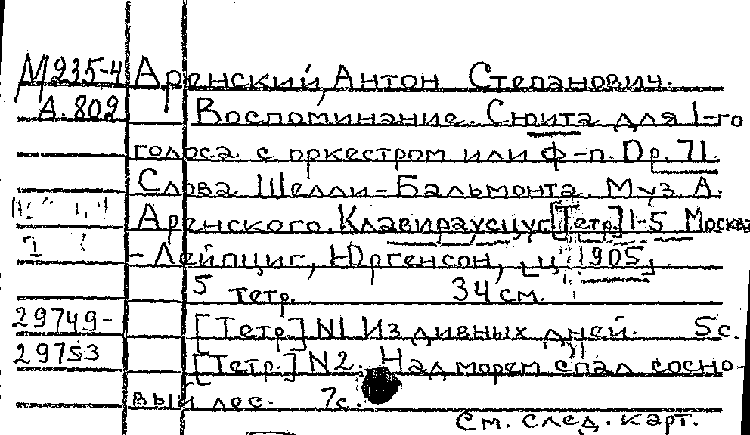 М 235-4 Аренский, Антон Степанович.
А. 809 Воспоминание. Сюита для 1-го
голоса с оркестром или ф-п. Op. 71.
Слова Шелли-Бальмонта. Муз. А.
Аренского. Клавираусцуг. [Тетр.] 1-5 Москва
- Лейпциг, Юргенсон, [ц. 1905]
5 тетр. 34 см.
29749- [Тетр.] N1 Из дивных дней. 5 с.
29753 [Тетр.] N2. Над морем спал сосно-
вый лес. 7 с.
См. след. карт.